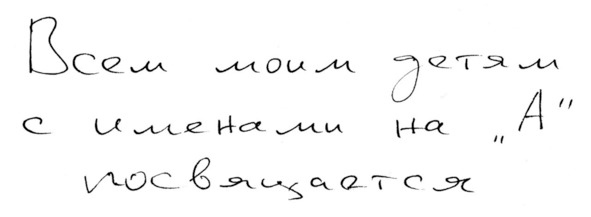 Всем моим детям
с именами на „А"
посвящается